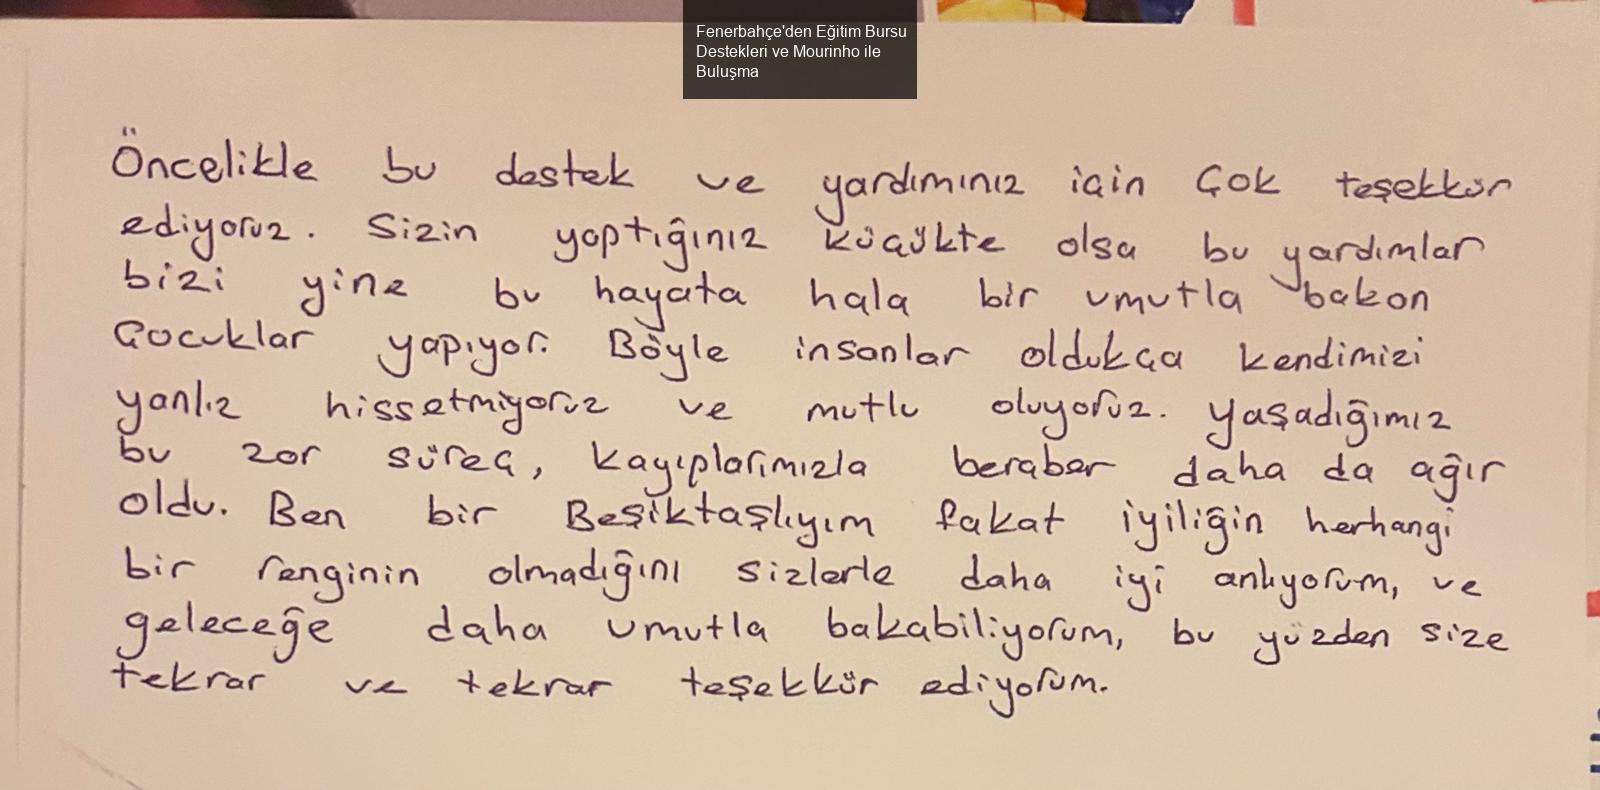 Fenerbahçe'den Eğitim Bursu
Destekleri ve Mourinho ile
Buluşma
Öncelikle bu destek ve yardımınız için çok teşekkür
ediyoruz. Sizin yaptığınız küçükte olsa bu yardımlar
bizi yine bu hayata hala bir umutla bakan
çocuklar yapıyor. Böyle insanlar oldukça kendimizi
yanlız hissetmiyoruz ve mutlu oluyoruz. Yaşadığımız
bu zor süreç, kayıplarımızla beraber daha da ağır
oldu. Ben bir Beşiktaşlıyım fakat iyiliğin herhangi
bir renginin olmadığını sizlerle daha iyi anlıyorum, ve
geleceğe daha umutla bakabiliyorum, bu yüzden size
tekrar ve tekrar teşekkür ediyorum.